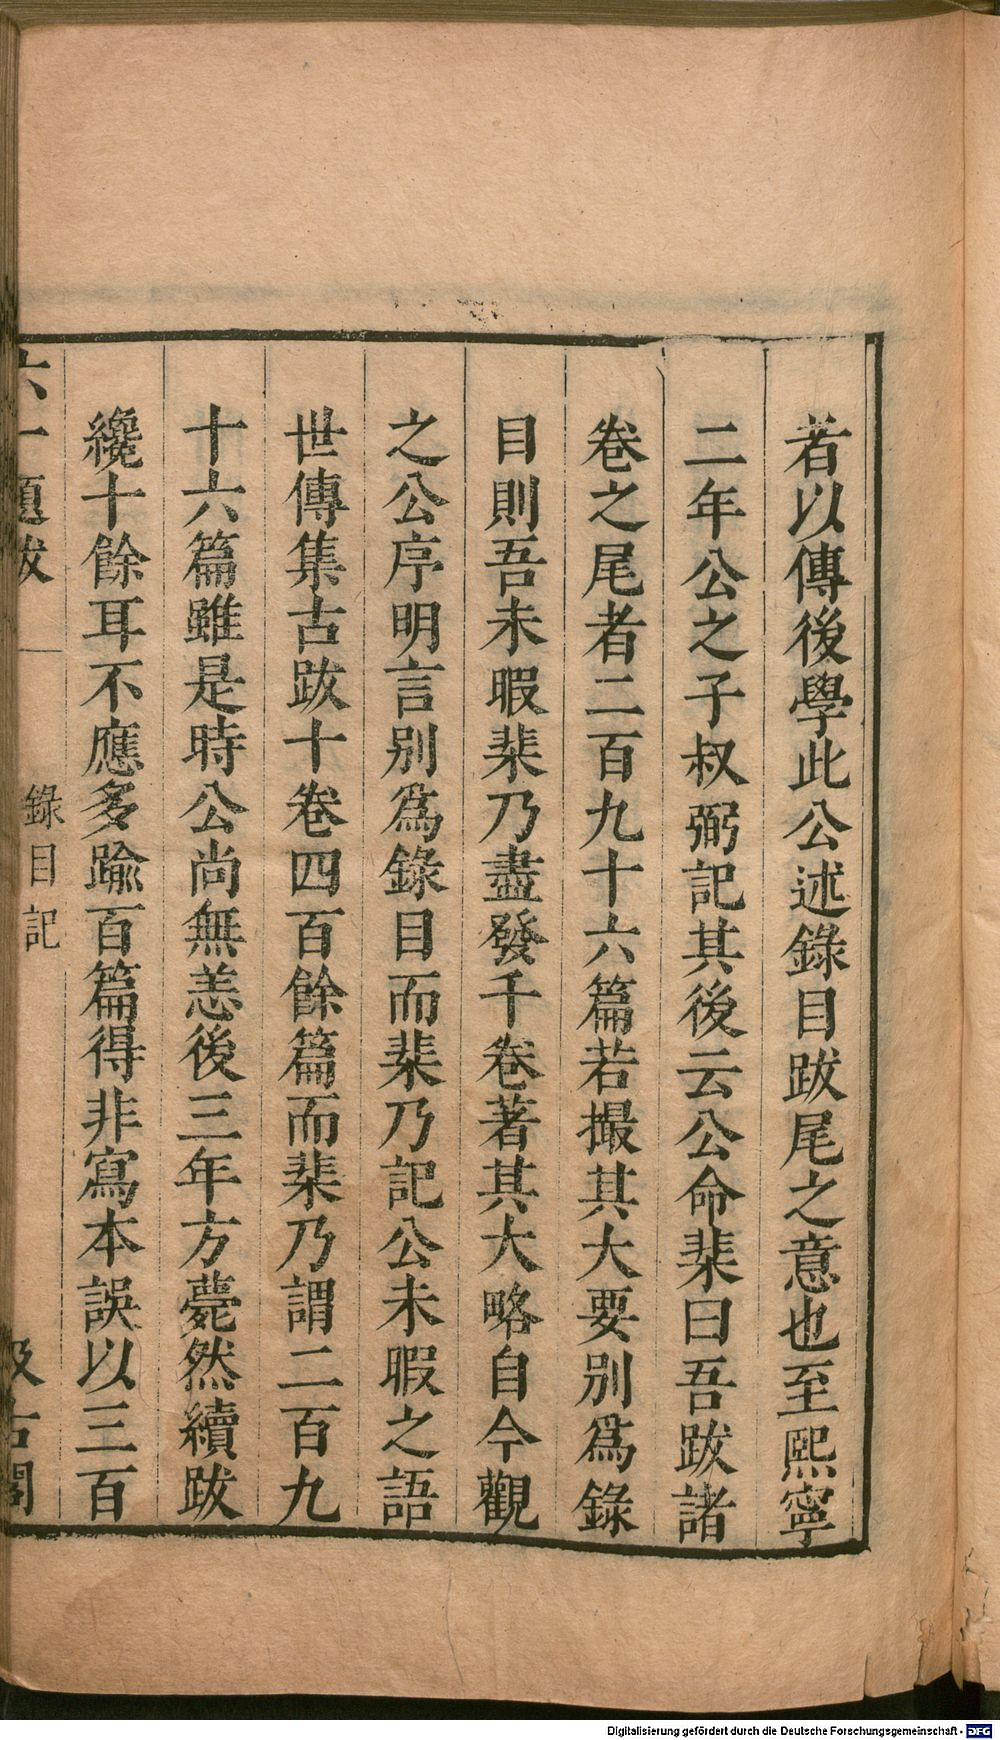 若以傳後學此公述錄目跋尾之意也至熙寧
二年公之子叔弼記其後云公命棐曰吾跋諸
卷之尾者二百九十六篇若撮其大要別爲錄
目則吾未暇棐乃盡發千卷著其大略自今觀
之公序明言別爲錄目而棐乃記公未暇之語
世傳集古跋十卷四百餘篇而棐乃謂二百九
十六篇雖是時公尚無恙後三年方薨然續跋
纔十餘耳不應多踰百篇得非寫本誤以三百
六一題跋
錄目記
汲古閣
Digitalisierung gefördert durch die Deutsche Forschungsgemeinschaft - DFG